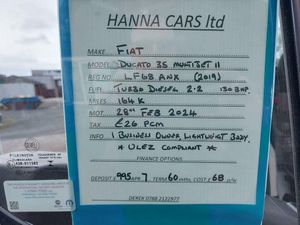 HANNA CARS ltd
MAKE FIAT
MODEL DUCATO 35 MULTIJET II
REG NO LF68 ANX (2019)
FUEL TURBO DIESEL 2.2 130 BHP
MILES 164K
MOT 28TH FEB 2024
TAX £26 PCM
INFO 1 BUSINESS OWNER LIGHTWEIGHT BODY
* ULEZ COMPLIANT *
FINANCE OPTIONS
DEPOSIT £ 995 APR 7 TERM 60 mnths COST £ 68 p/w
DEREK 0788 2122977
PILKINGTON